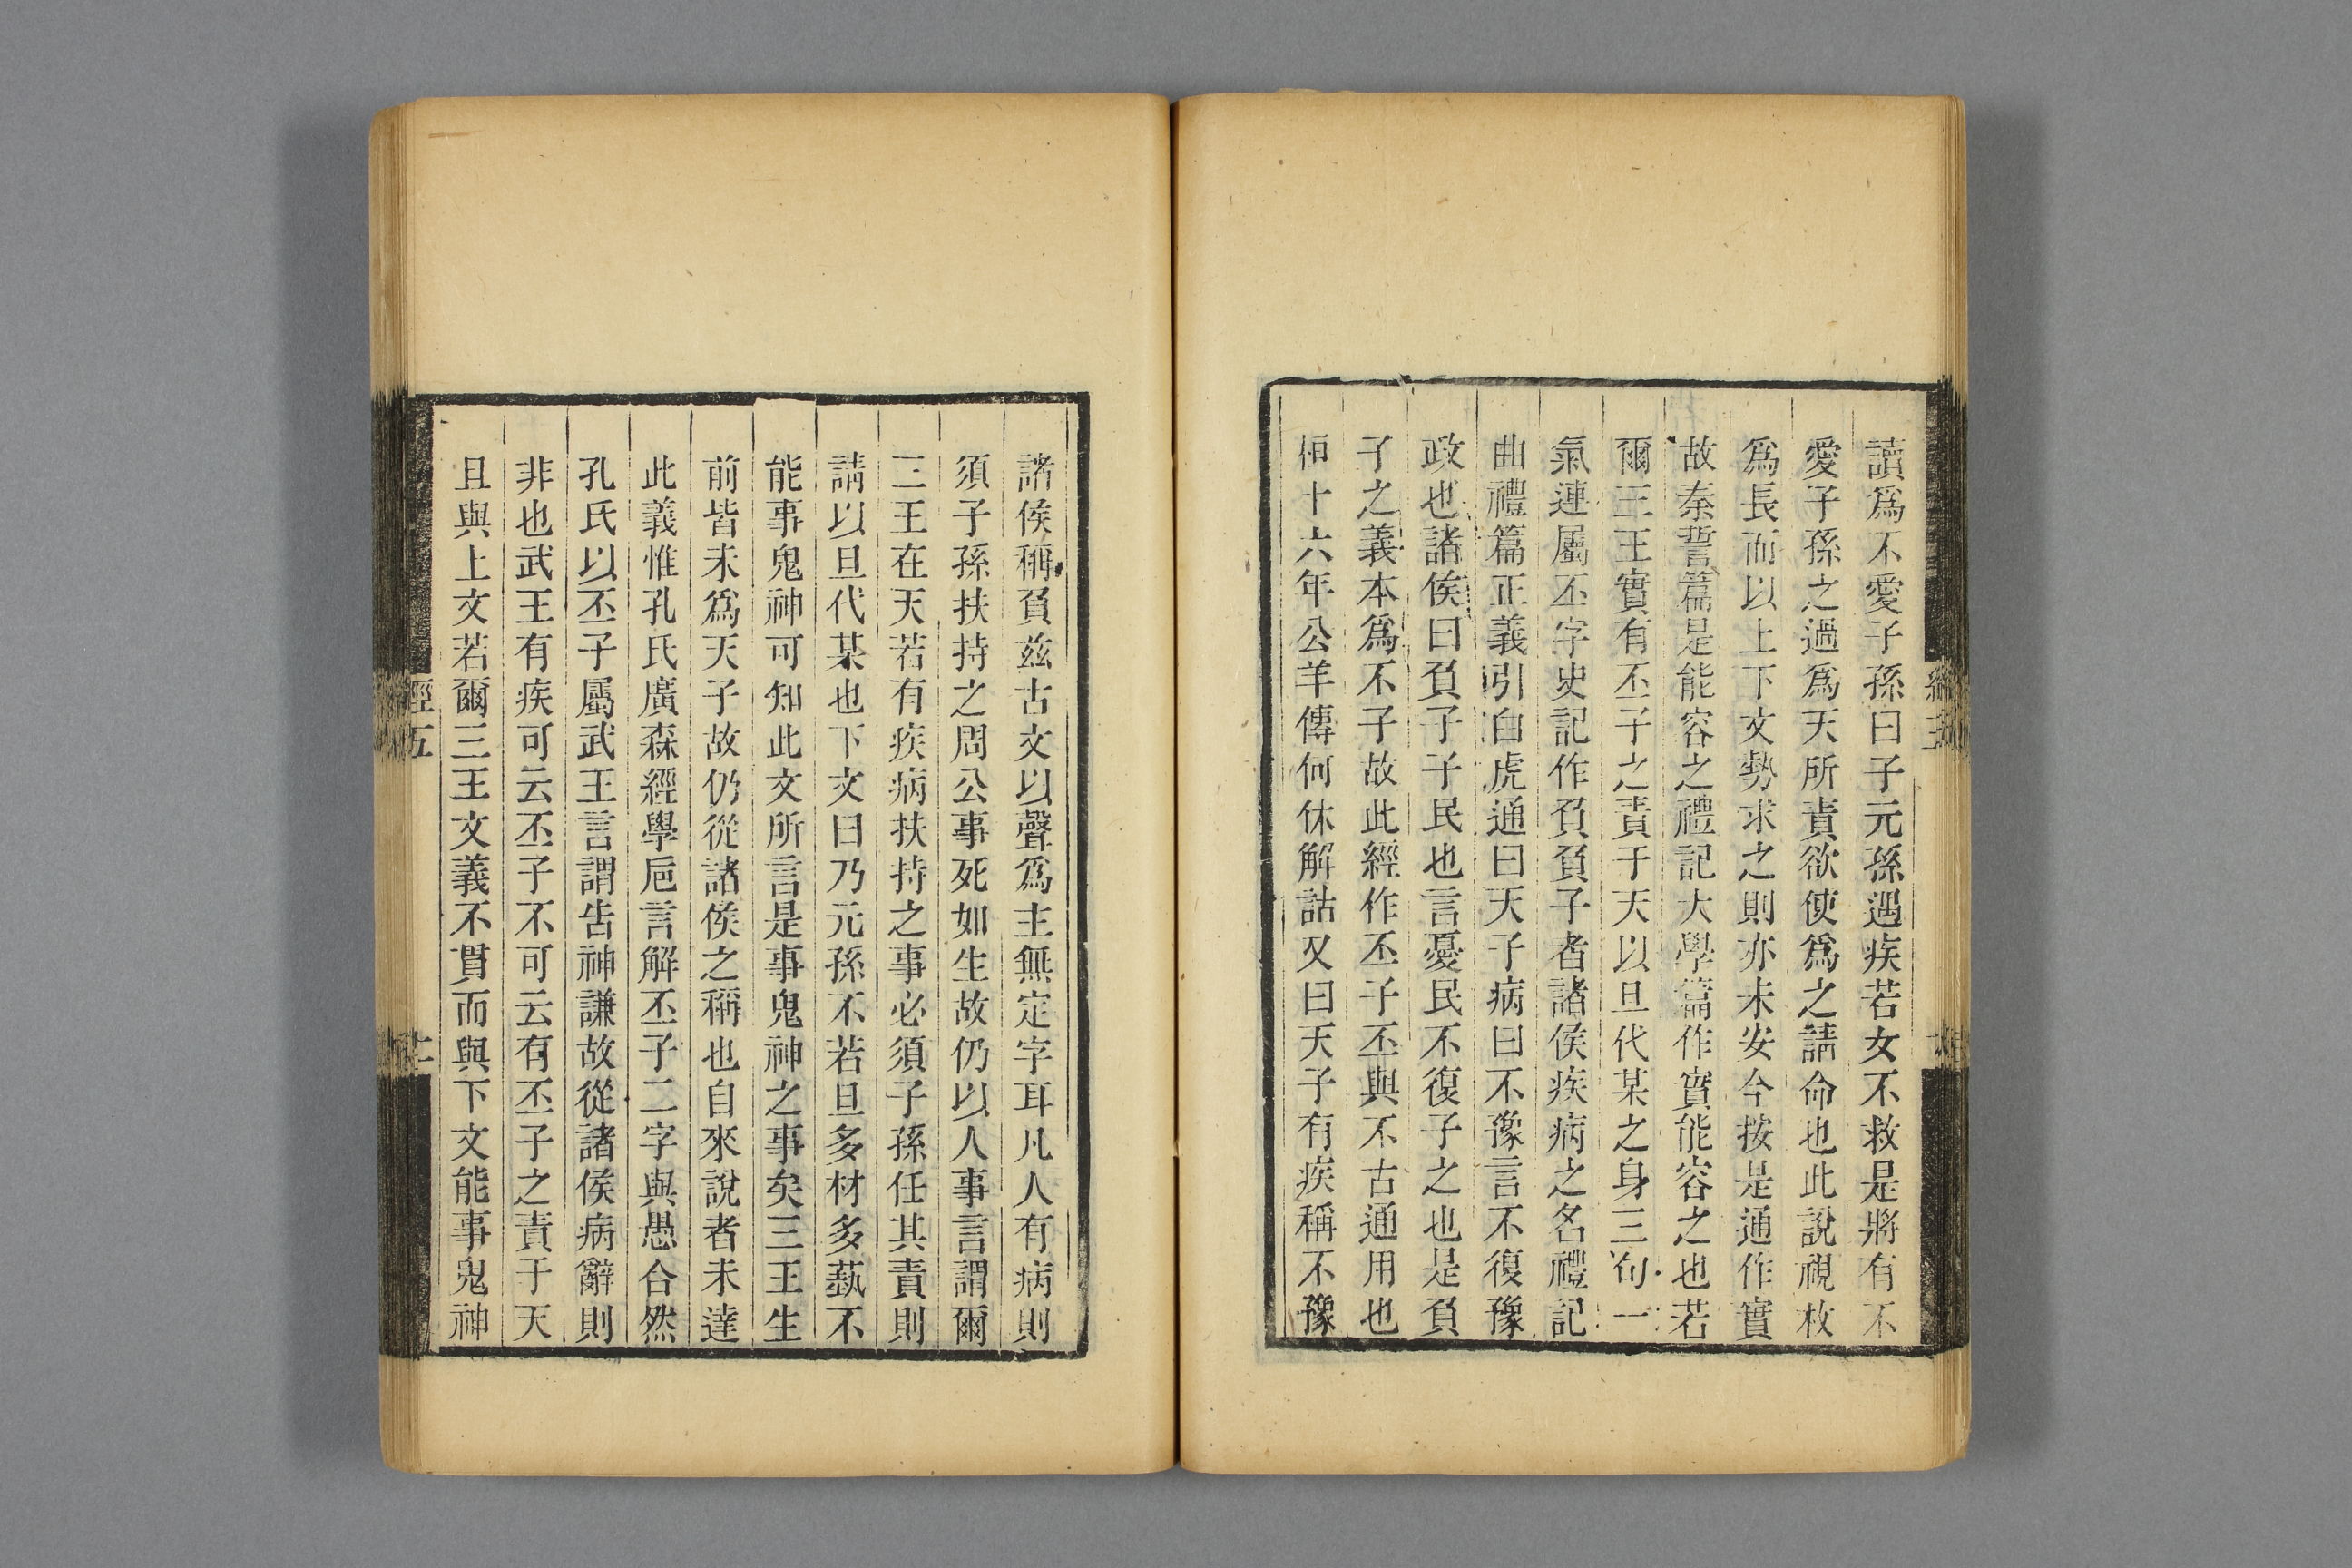 讀爲不愛子孫曰子元孫遇疾若女不救是將有不
愛子孫之過爲天所責欲使爲之請命也此說視枚
爲長而以上下文勢求之則亦未安今按是通作實
故秦誓篇是能容之禮記大學篇作實能容之也若
爾三王實有丕子之責于天以旦代某之身三句一
氣連屬丕字史記作負負子者諸侯疾病之名禮記
曲禮篇正義引白虎通曰天子病曰不豫言不復豫
政也諸侯曰負子子民也言憂民不復子之也是負
子之義本爲不子故此經作丕子丕與不古通用也
桓十六年公羊傳何休解詁又曰天子有疾稱不豫
諸侯稱負兹古文以聲爲主無定字耳凡人有病則
須子孫扶持之周公事死如生故仍以人事言謂爾
三王在天若有疾病扶持之事必須子孫任其責則
請以旦代某也下文曰乃元孫不若旦多材多蓺不
能事鬼神可知此文所言是事鬼神之事矣三王生
前皆未爲天子故仍從諸侯之稱也自來說者未達
此義惟孔氏廣森經學卮言解丕子二字與愚合然
孔氏以丕子屬武王言謂告神謙故從諸侯病辭則
非也武王有疾可云丕子不可云有丕子之責于天
且與上文若爾三王文義不貫而與下文能事鬼神
經五